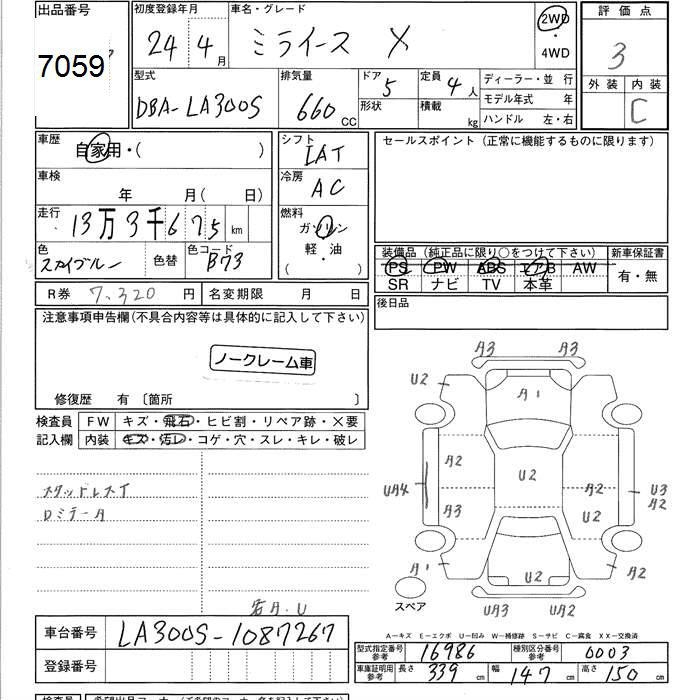 出品番号 7059
初度登録年月 24年 4月
車名・グレード ミライース X
2WD・4WD
評価点 3
外装 内装 C
型式 DBA-LA300S
排気量 660 CC
ドア 5
形状
定員 4人
積載 kg
ディーラー・並行
モデル年式 年
ハンドル 左・右
車歴 自家用・( )
車検 年 月( 日)
走行 13万3千675 km
色 スカイブルー 色替 色コード B73
シフト IAT
冷房 AC
燃料 ガソリン
軽・油
( ・ )
セールスポイント(正常に機能するものに限ります)
装備品 (純正品に限り○をつけて下さい) 新車保証書
PS PW ABS エアB AW 有・無
SR ナビ TV 本革
後日品
R券 7,320円 名変期限 月 日
注意事項申告欄(不具合内容等は具体的に記入して下さい)
ノークレーム車
修復歴 有 〔箇所 〕
検査員 FW キズ・飛石・ヒビ割・リペア跡・×要
記入欄 内装 キズ・汚レ・コゲ・穴・スレ・キレ・破レ
スタッドレスT
Dミラー A
A3 A3
U2 A1
A2 U2 A2
UA4 A3 U2 U3 A2
A1 U2 A2
スペア UA3 UA2
A-キズ E-エクボ U-凹み W-補修跡 S-サビ C-腐食 XX-交換済
車台番号 LA300S-1087267
登録番号
型式指定番号参考 16986 種別区分番号参考 0003
車庫証明用参考 長さ 339 cm 幅 147 cm 高さ 150 cm